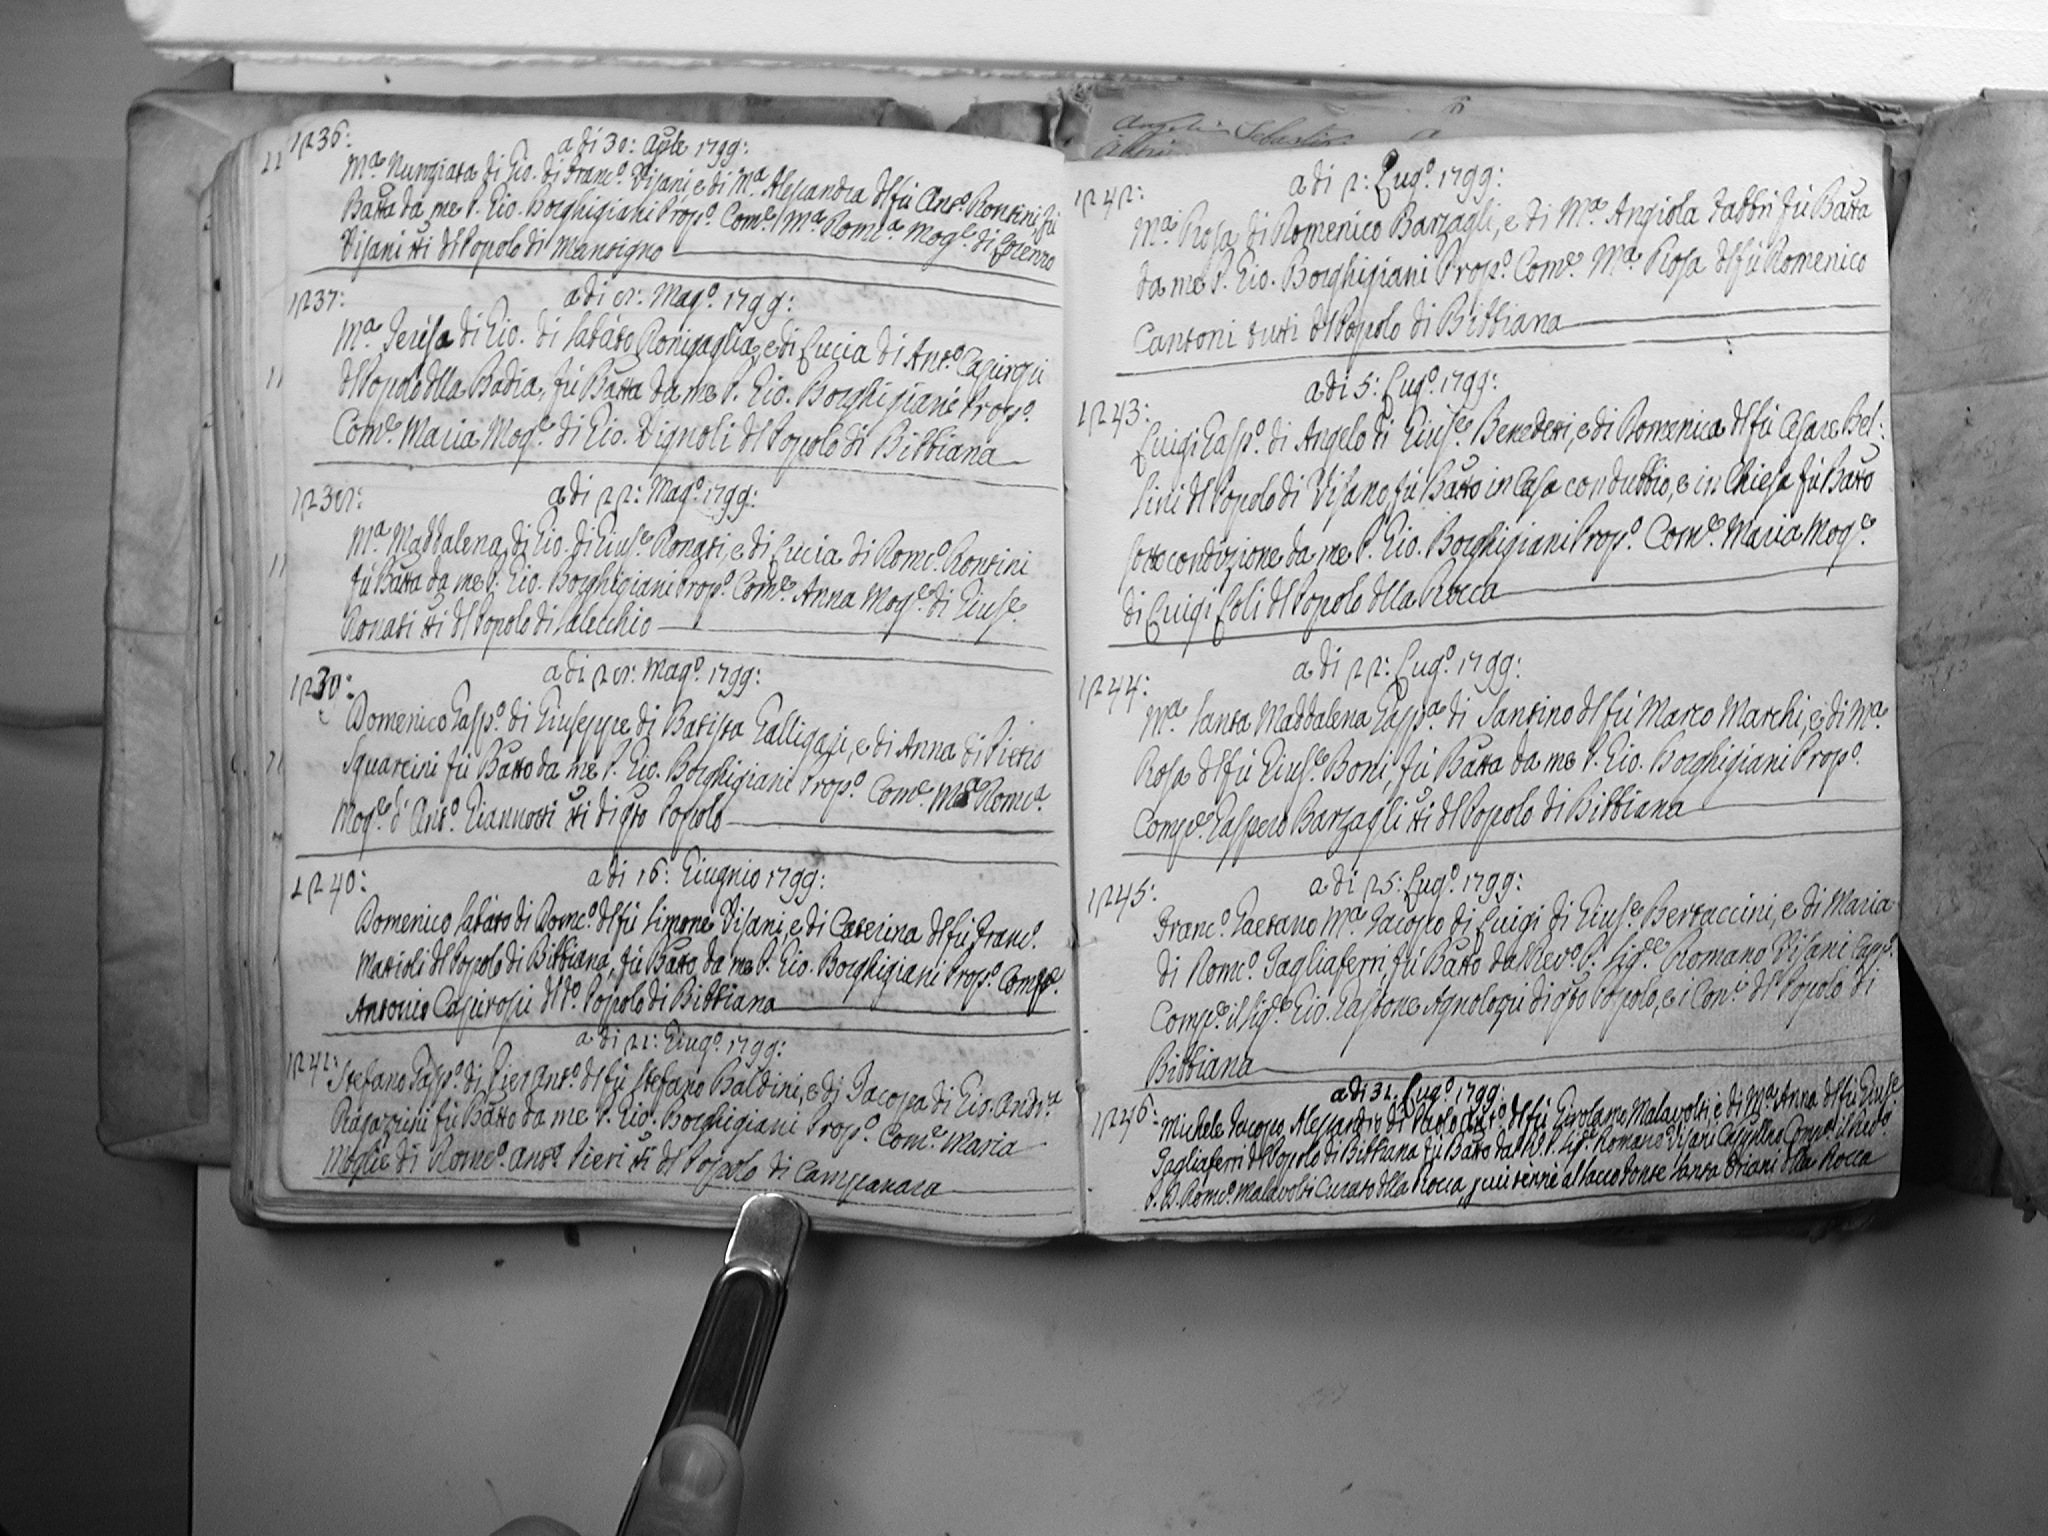 1236:
a di 30: Aple 1799:
11
Mª Nunziata di Gio. di Francº. Visani e di Mª Alessandra del fù Antº. Rontini, fù
Batta da me P. Gio. Borghigiani Propº. Comᵉ. Mª Domcª Mogᵉ. di Lorenzo
Visani tti del Popolo di Mantigno
1237:
a di 8: Magº. 1799:
Mª Teresa di Gio. di Sabato Donigaglia, e di Lucia di Antº.
11
del Popolo della Badia, fù Batta da me P. Gio. Borghigiani Propº.
Comᵉ. Maria Mogᵉ. di Gio. Vignoli del Popolo di Bibbiana
1238:
a di 22: Magº. 1799:
Mª Maddalena di Gio. di Giusᵉ. Donati, e di Lucia di Domcº. Rontini
11
fù Batta da me P. Gio. Borghigiani Propº. Comᵉ. Anna Mogᵉ. di Giusᵉ.
Donati tti del Popolo di Salecchio
1239:
a di 28: Magº. 1799:
Domenico Gaspº. di Giuseppe di Batista Galligari, e di Anna di Pietro
Squarcini fù Batto da me P. Gio. Borghigiani Propº. Comᵉ. Mª Domcª.
Mogᵉ. d' Antº. Giannotti tti di qto Popolo
1240:
a di 16: Giugnio 1799:
Domenico Sabato di Domcº. del fù Simone Visani, e di Caterina del fù Francº.
Matioli del Popolo di Bibbiana, fù Batto da me P. Gio. Borghigiani Propº. Compᵉ.
Antonio del dº. Popolo di Bibbiana
1241:
a di 21: Giugº. 1799:
Stefano Gaspº. di Pier Antº. del fù Stefano Baldini, e di Jacopa di Gio. Andrª
Ragazzini fù Batto da me P. Gio. Borghigiani Propº. Comᵉ. Maria
Moglie di Domcº. Antº. Pieri tti del Popolo di Campanara
1242:
a di 2: Lugº. 1799:
Mª Rosa di Domenico Barzagli, e di Mª Angiola Fabbri fù Batta
da me P. Gio. Borghigiani Propº. Comᵉ. Mª Rosa del fù Domenico
Cantoni tutti del Popolo di Bibbiana
1243:
a di 5: Lugº. 1799:
Luigi Gaspº. di Angelo di Giusᵉ. Benedetti, e di Domenica del fù Cesare Bel:
lini del Popolo di Visano, fù Batto in Casa con dubbio, e in Chiesa fù Batto
sotto condizione da me P. Gio. Borghigiani Propº. Comᵉ. Maria Mogᵉ
di Luigi Poli del Popolo della Rocca
1244:
a di 22: Lugº. 1799:
Mª Santa Maddalena Gaspª di Santino del fù Marco Marchi, e di Mª
Rosa del fù Giusᵉ. Boni, fù Batta da me P. Gio. Borghigiani Propº.
Compᵉ. Gaspero Barzagli tti del Popolo di Bibbiana
1245:
a di 25: Lugº. 1799:
Francº. Gaetano Mª Jacopo di Luigi di Giusᵉ. Bertaccini, e di Maria
di Domcº. Tagliaferri, fù Batto dal Revº. P. Sigᵉ. Romano Visani Capp.
Compᵉ. il Sigᵉ. Gio. Gastone Agnolozzi di qto Popolo, e i Conᵢ. del Popolo di
Bibbiana
a di 31. Lugº. 1799:
1246:
Michele Jacopo, Alessandro di Paolo Antº. del fù Girolamo Malavolti, e di Mª Anna del fù Giusᵉ
Tagliaferri del Popolo di Bibbiana fù Batto dal R. P. Sigᵉ. Romano Visani Compᵉ. il Revº.
P. D. Domcº. Malavolti Curato della Rocca, tenne al Sacro Fonte Santa Oriani della Rocca